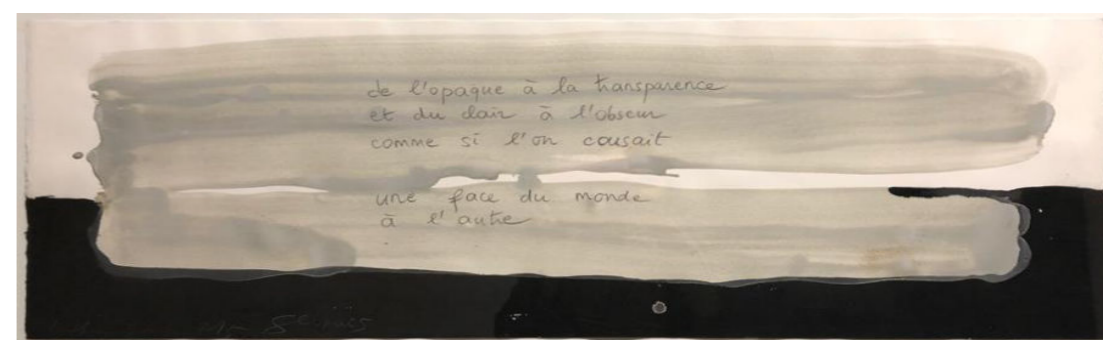 de l'opaque à la transparence
et du clair à l'obscur
comme si l'on cousait
une face du monde
à l'autre